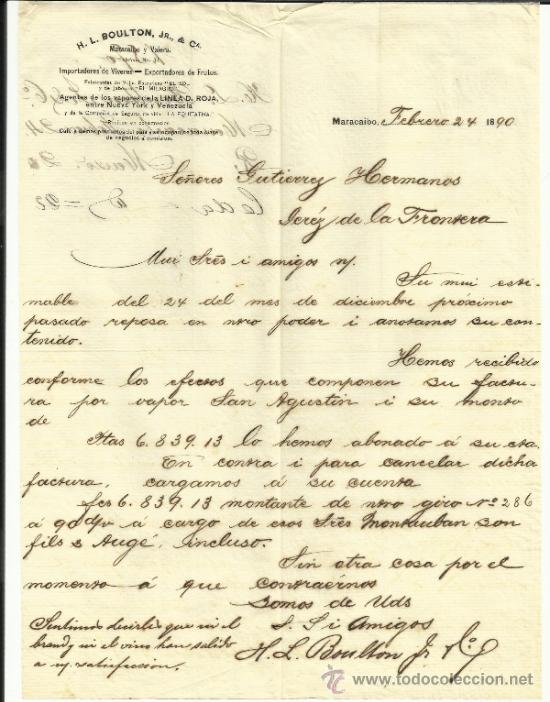 H. L. BOULTON, JR., & Ca.
Maracaibo y Valera.
Importadores de Víveres — Exportadores de Frutos.
Agentes de los vapores de la LINEA D. ROJA,
entre Nueva York y Venezuela
y de la Compañía de Seguros "LA EQUITATIVA."
Maracaibo, Febrero 24 1890
Señores Gutierrez Hermanos
Jeréz de la Frontera
Mui Sres i amigos n/.
Su mui esti-
mable del 24 del mes de diciembre próximo
pasado reposa en ntro poder i anotamos su con-
tenido.
Hemos recibido
conforme los efectos que componen su factu-
ra por vapor San Agustin i su monto
de
Ptas 6.839.13 lo hemos abonado á su cta.
En contra i para cancelar dicha
factura, cargamos á su cuenta
fcs 6.839.13 montante de ntro giro No 286
á 90 d/v á cargo de esos Sres Montauban son
fils & Augé, incluso.
Sin otra cosa por el
momento á que contraernos
somos de Uds
S. S i Amigos
H. L. Boulton Jr. & Co.
Sentimos decirles que ni el
brandy ni el vino han salido
a n/ satisfacción.
todocoleccion.net